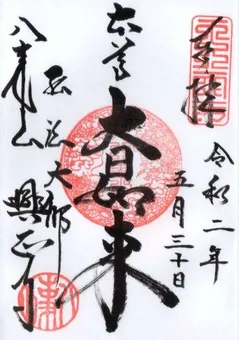 奉拝
令和二年
五月三十日
本尊
大日如来
弘法大師
興正寺